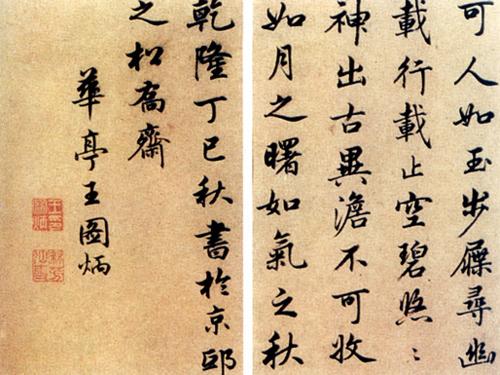 可人如玉步屧尋幽
載行載止空碧悠〻
神出古異澹不可收
如月之曙如氣之秋
乾隆丁巳秋書於京邸
之松喬齋
華亭王圖炳